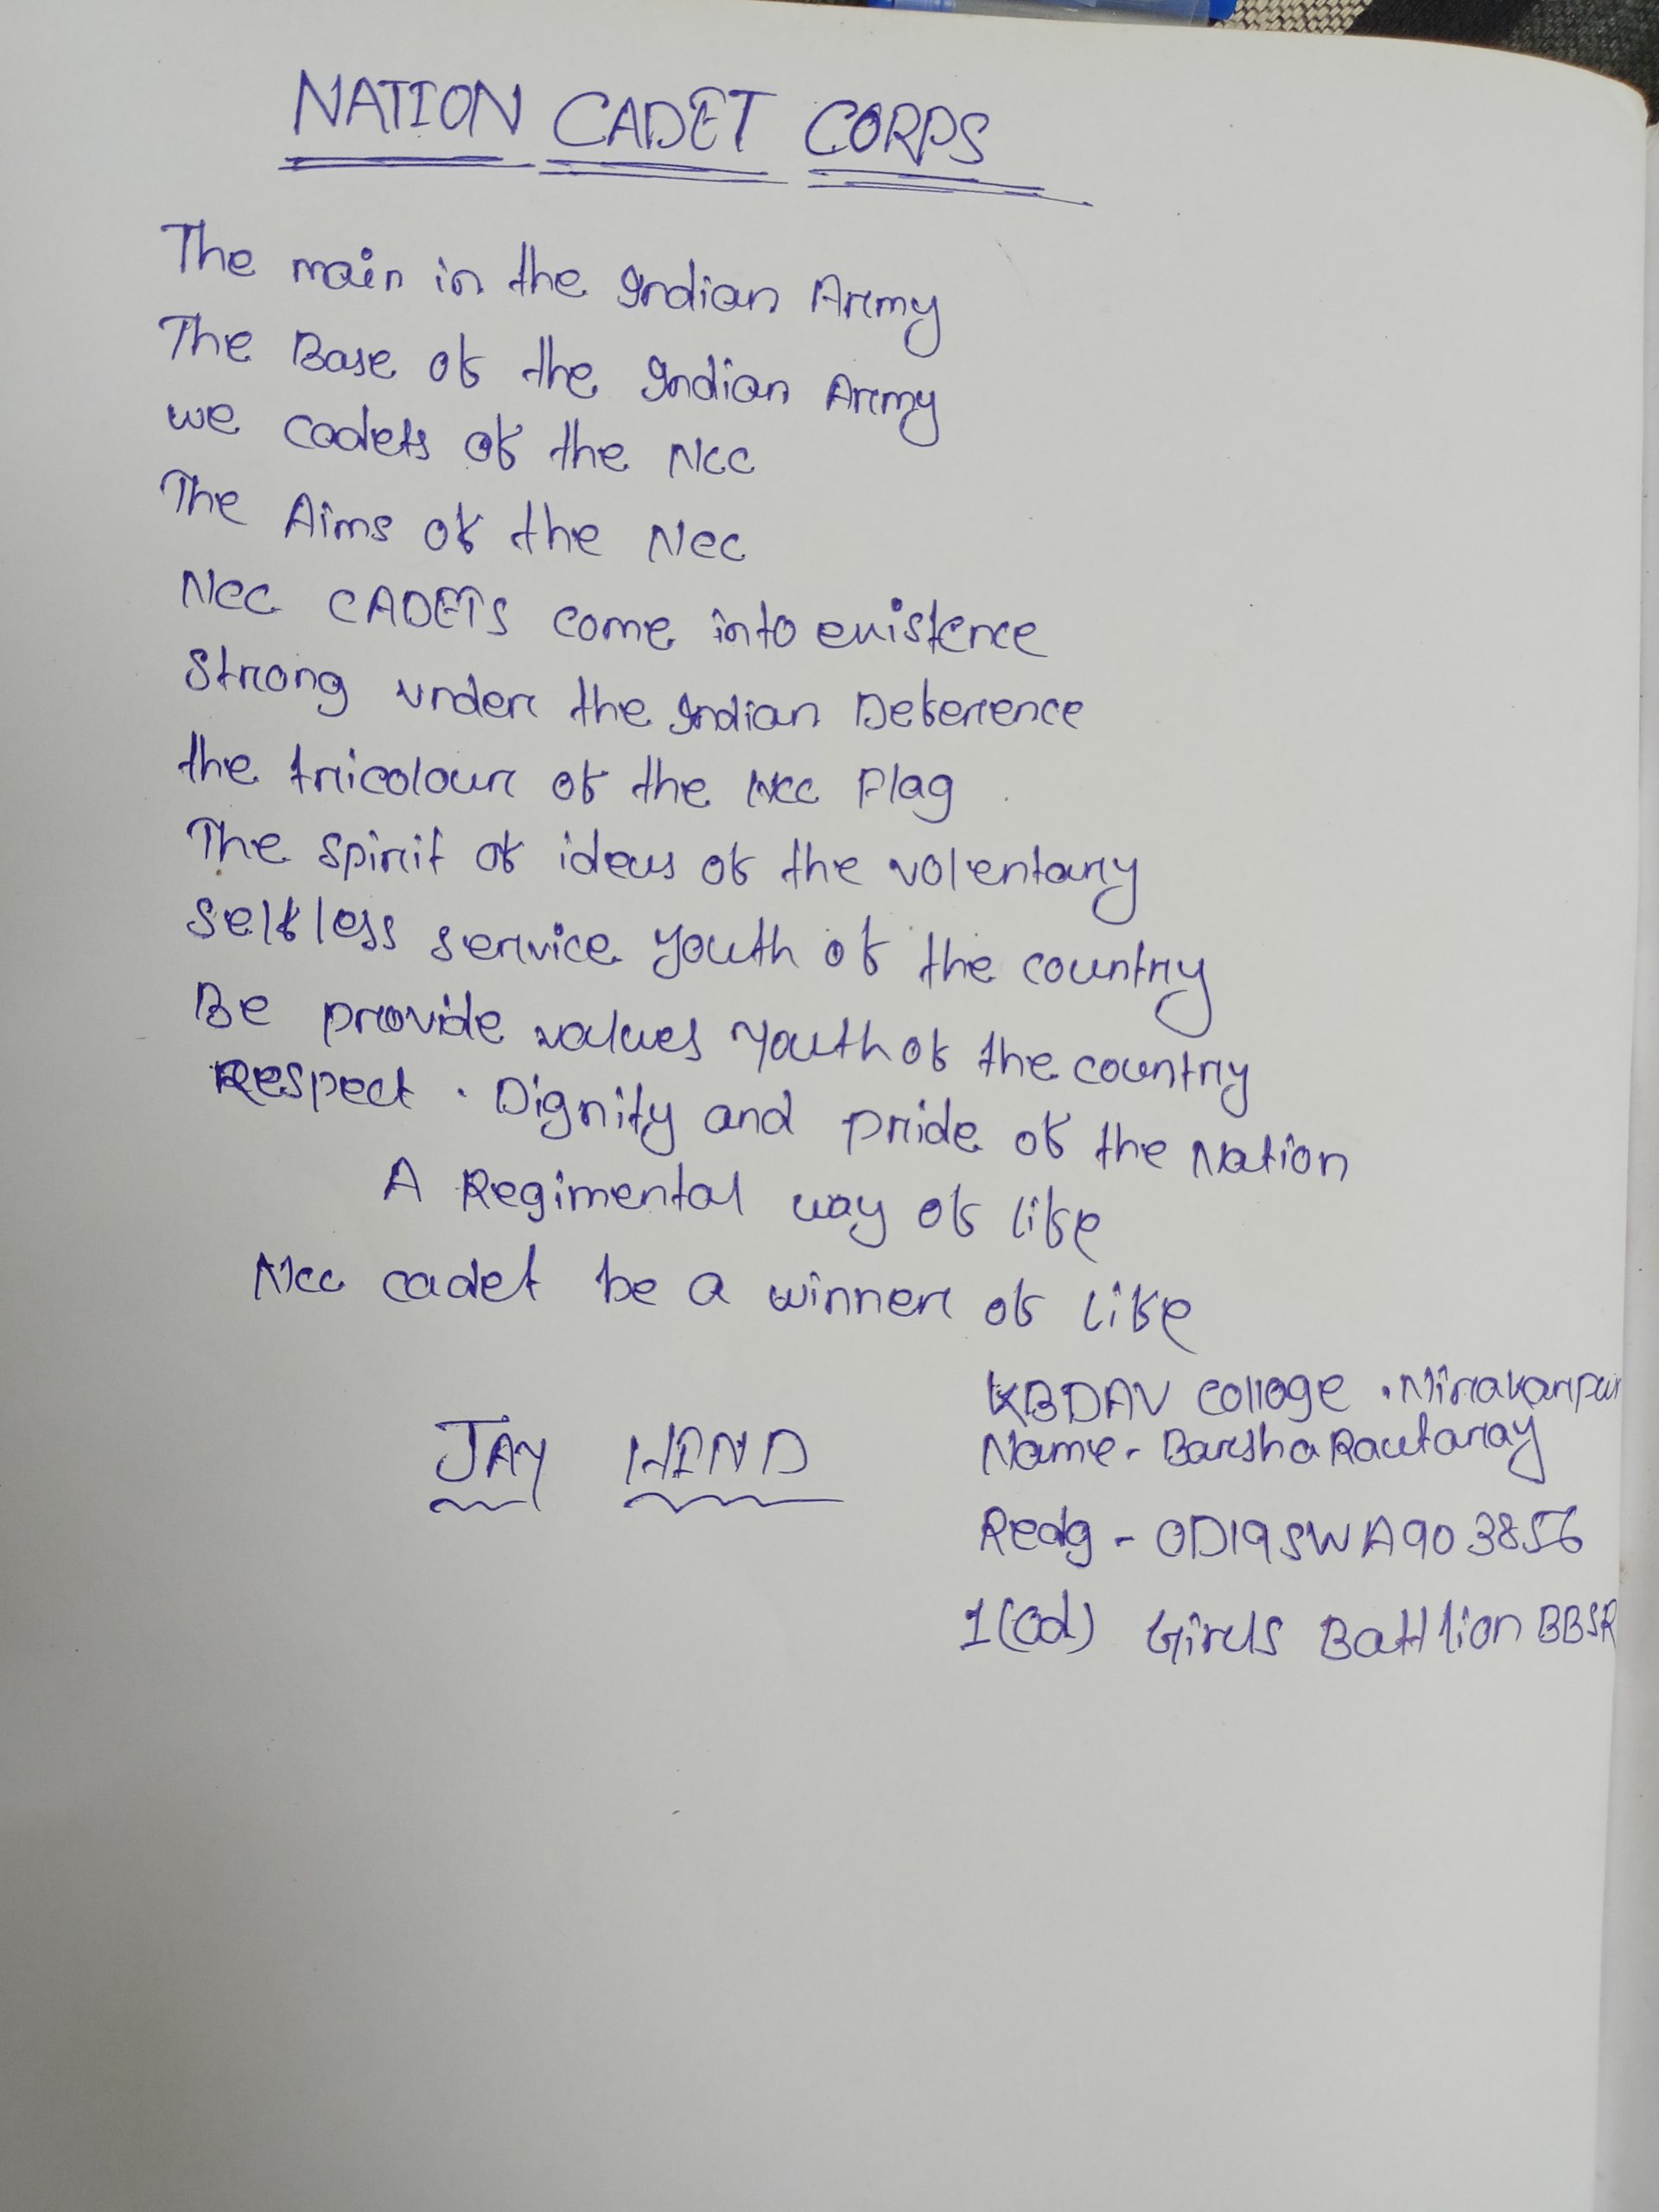 NATION CADET CORPS
The main in the Indian Army
The Base of the Indian Army
we cadets of the Ncc
The Aims of the Ncc
Ncc CADETS come into existence
Strong under the Indian Deference
the tricolour of the Ncc Flag
The spirit of ideas of the volentary
selfless service youth of the country
Be provide values youth of the country
Respect . Dignity and pride of the Nation
A Regimental way of life
Ncc cadet be a winner of life
KBDAV college . Nirakarpur
JAY HIND
Name - Barsha Rautaray
Redg - OD19SWA903856
1(Od) Girls Battlion BBSR